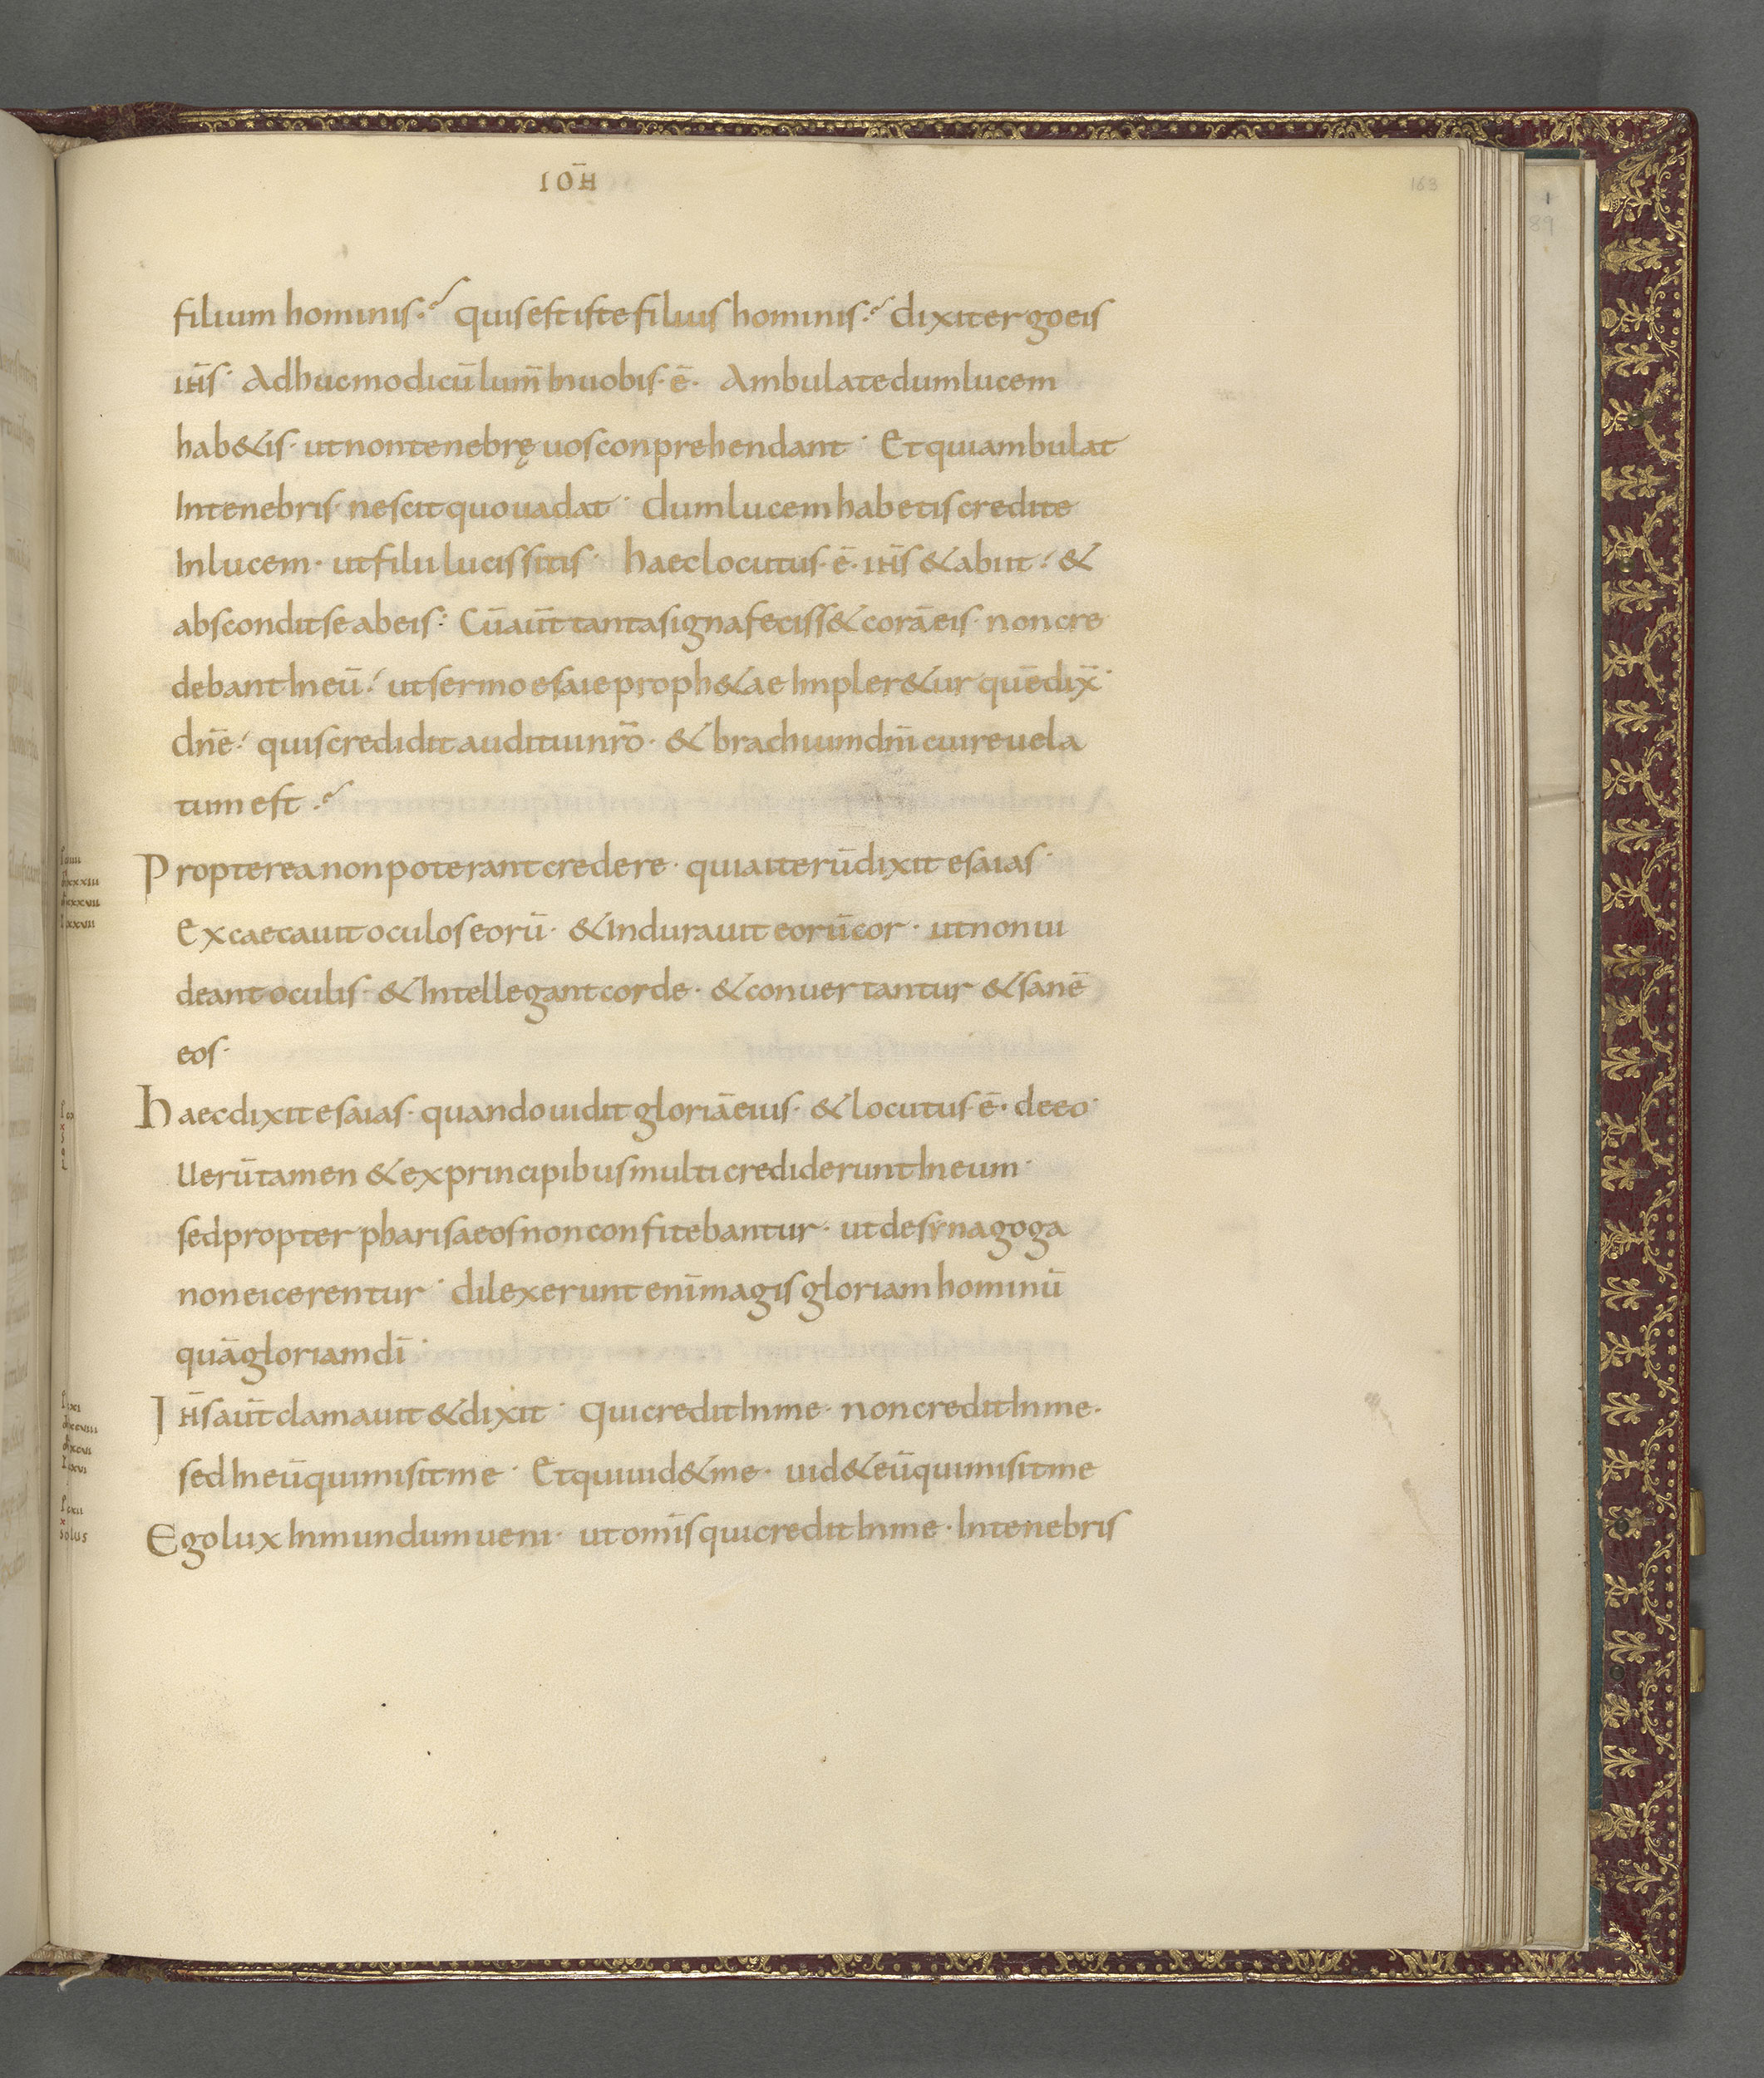 IOH̄
163
1
89
filium hominis? quis est iste filius hominis? dixit ergo eis
ih̄s· Adhuc modicū lum̄ In uobis· ē· Ambulate dum lucem
hab&is· ut non tenebrę uos conprehendant· Et qui ambulat
In tenebris· nescit quo uadat· dum lucem habetis credite
In lucem· ut filii lucis sitis· haec locutus· ē· ih̄s & abiit· &
abscondit se ab eis· Cū aūt tanta signa feciss& corā eis· non cre
debant In eū· ut sermo esaie proph&ae Impler&ur quē dix̄·
dn̄e· quis credidit auditui nr̄o· & brachium dn̄i cui reuela
tum est?
Propterea non poterant credere· quia iterū dixit esaias·
Excaecauit oculos eorū· & Indurauit eorū cor· ut non ui
deant oculis· & Intellegant corde· & conuertantur & sanē
eos·
Haec dixit esaias· quando uidit gloriā eius· & locutus· ē· de eo·
Uerū tamen & ex principibus multi crediderunt In eum·
sed propter pharisaeos non confitebantur· ut de synagoga
non eicerentur· dilexerunt enī magis gloriam hominū
quā gloriam dī·
IH̄s aūt clamauit & dixit· qui credit In me· non credit In me·
sed In eū qui misit me· Et qui uid& me· uid& eū qui misit me
Ego lux In mundum ueni· ut om̄is qui credit In me· In tenebris
x
solus